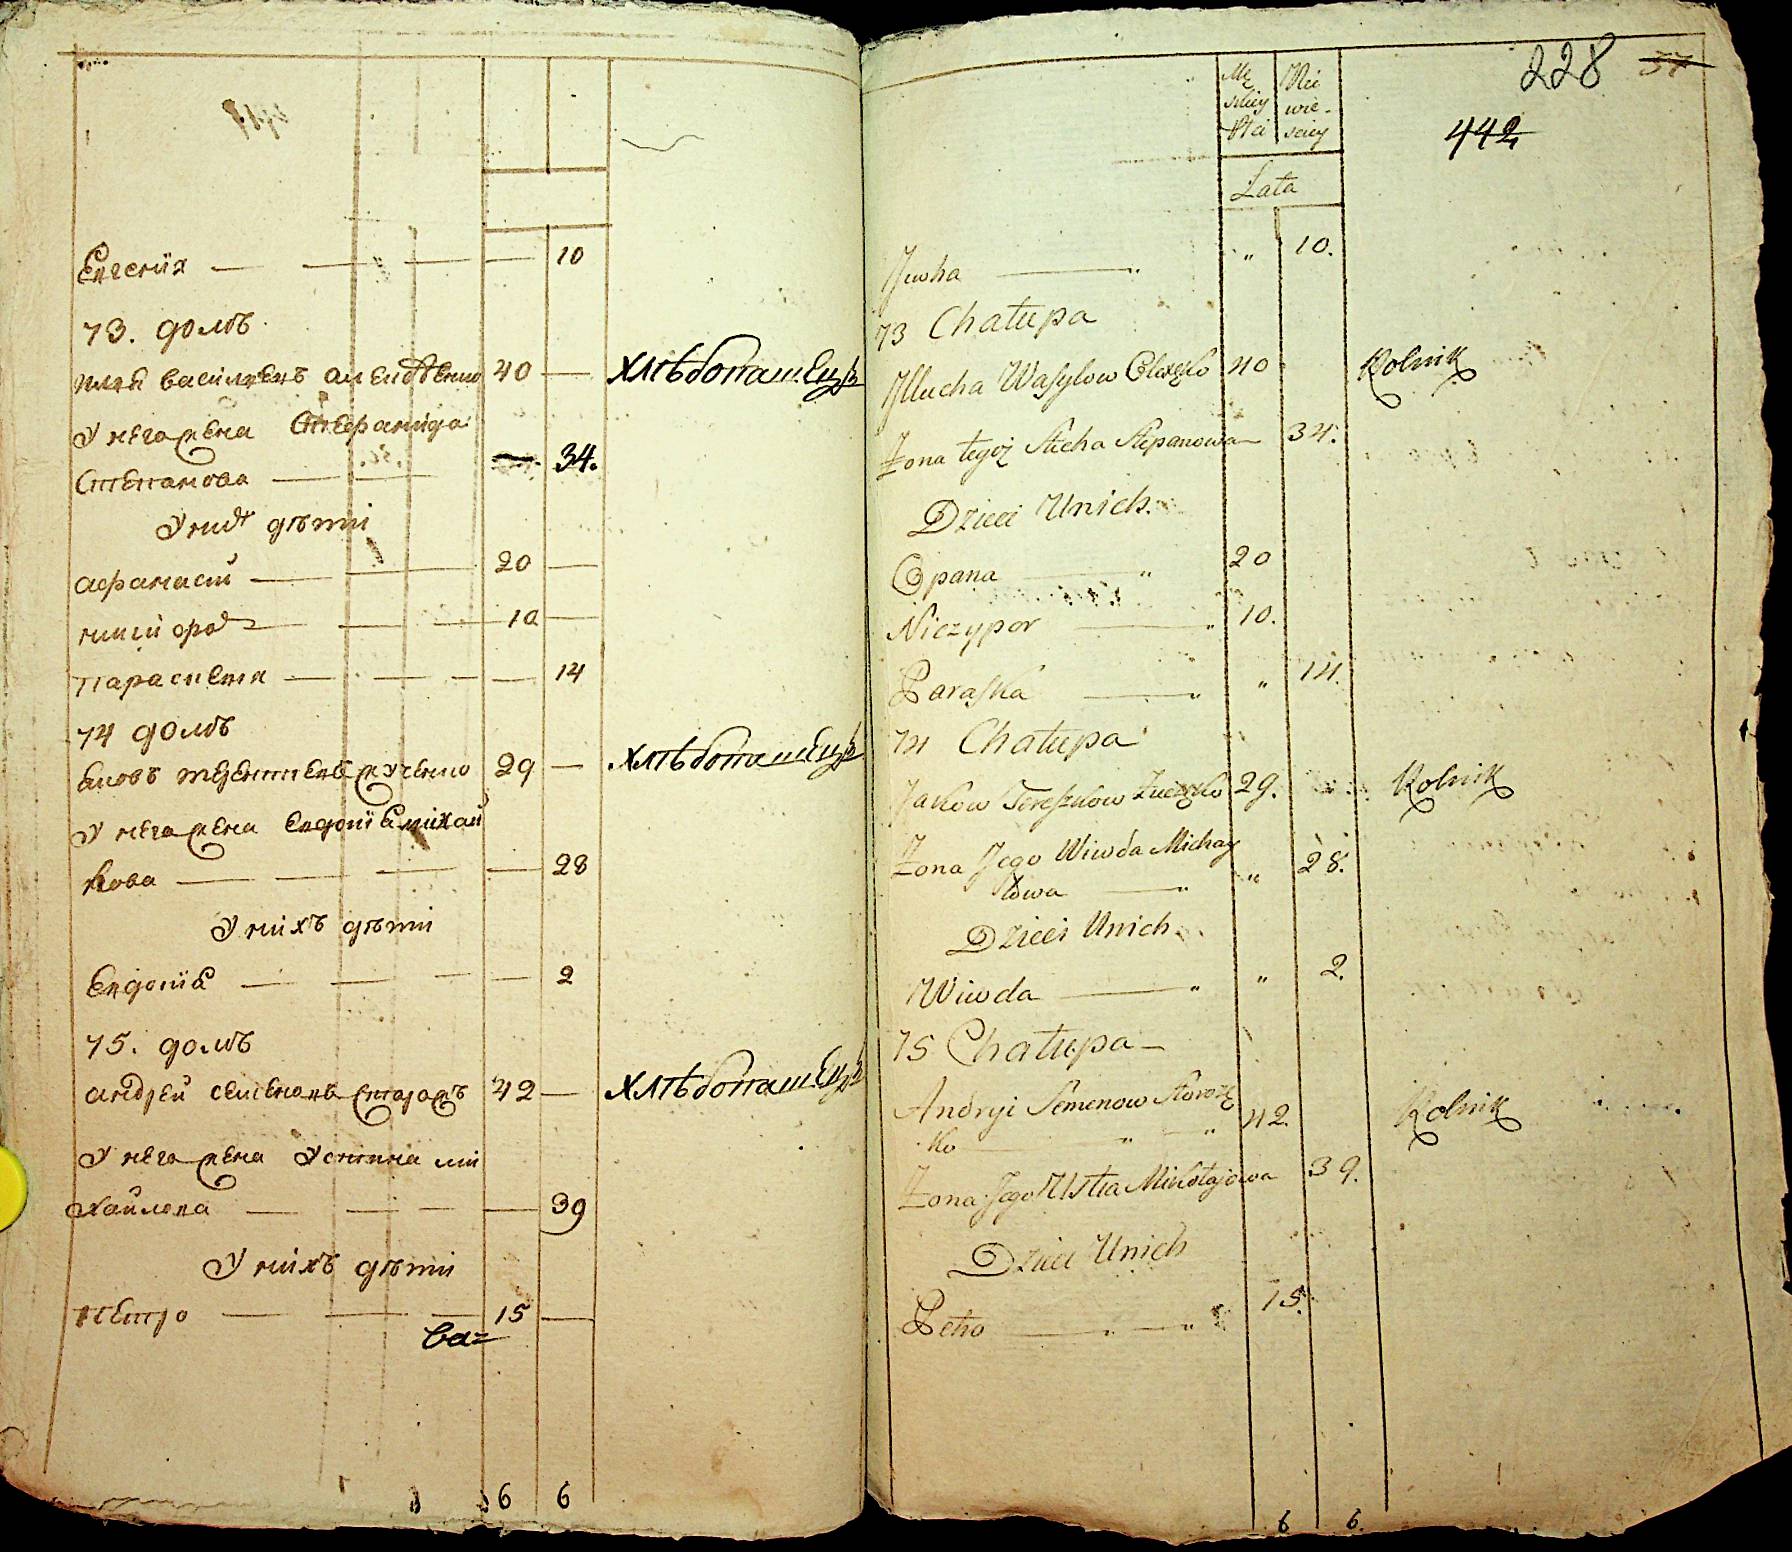 Евгенія — 10
73. домъ
илья василиевъ 40 — хлѣбопашецъ
У него жена Степанида
Степанова — 34.
У них дѣти
афанасій — 20 —
ничипоръ — 10 —
параскевия — 14
74 домъ
яковъ терентиевъ зученко 29 — хлѣбопашецъ
У него жена Евдокія михай
лова — 28
У нихъ дѣти
Евдокія — 2
75. домъ
андрей семеновъ 42 — хлѣбопашецъ
У него жена Устина ми
хайлова — 39
У нихъ дѣти
петро — 15 —
ва=
6 6
228 57
442
Mę skiey Płci Nie wie- sciey
Lata
Jiwha — " 10.
73 Chałupa
Illucha Wasylow 40 Rolnik
Żona tegoż Stecha Stepanowa 34.
Dzieci Unich.
Opana " 20
Niczypor " 10.
Paraska " " 14.
74 Chałupa
Jakow Tereszkow Zuczko 29. Rolnik
Żona Jego Wiwda Michay
łowa " " 28.
Dzieci Unich
Wiwda " " 2.
75 Chałupa
Andryi Semenow Storoż
ko " " 42. Rolnik
Żona Jego Ustia Mikołajowa 39.
Dzieci Unich
Petro " 15.
6 6.